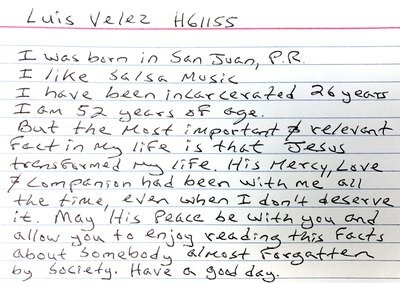 Luis Velez H61155
I was born in San Juan, P.R.
I like Salsa Music
I have been incarcerated 26 years
I am 52 years of age.
But the Most important & relevant
Fact in My life is that Jesus
transformed My life. His Mercy, Love
& Companion had been with me all
the time, even when I don't deserve
it. May His Peace be with you and
allow you to enjoy reading this Facts
about Somebody almost Forgatten
by Society. Have a good day.